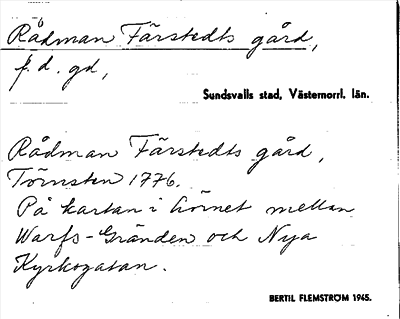 Rådman Färstedts gård,
f.d. gd,
Sundsvalls stad, Västernorrl. län.
Rådman Färstedts gård,
Törnsten 1776.
På kartan i hörnet mellan
Warfs-Gränden och Nya
Kyrkogatan.
BERTIL FLEMSTRÖM 1945.